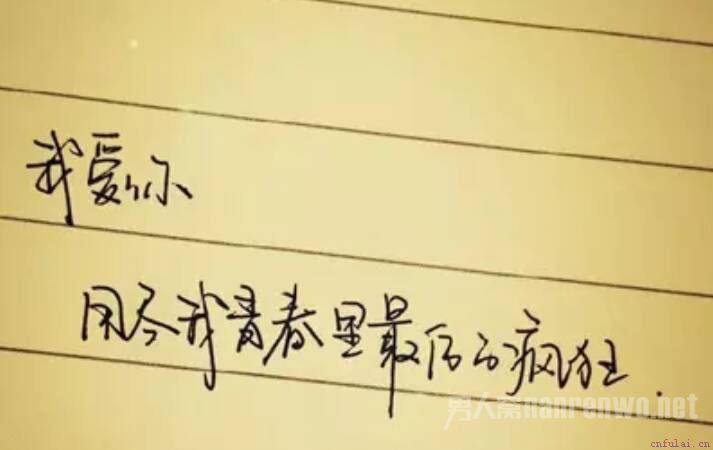 我爱你
用尽我青春里最后的疯狂.
男人窝nanrenwo.net
cnfulai.cn